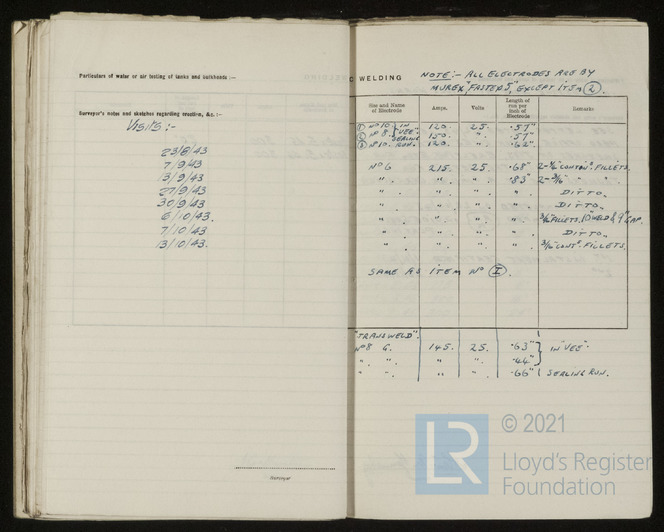 Particulars of water or air testing of tanks and bulkheads :—
Surveyor's notes and sketches regarding erection, &c. :—
VISITS :-
23/8/43
7/9/43
13/9/43
27/9/43
30/9/43
6/10/43.
7/10/43
13/10/43.
Surveyor
C WELDING
NOTE :- ALL ELECTRODES ARE BY
MUREX "FASTEX 5", EXCEPT ITEM 2.
Size and Name of Electrode Amps. Volts Length of run per inch of Electrode Remarks
① Nº 10. } IN 120. 25. .57"
② Nº 8. } "VEE". 150. " .57"
③ Nº 10. SEALING RUN. 120. " .62"
Nº 6 215. 25. .68" 2-3/16" CONTONS. FILLETS.
" " " .83" 2-3/16 " "
" " " " DITTO.
" " " " DITTO.
" " " " 3/16 FILLETS. WELD 9" GAP.
" " " " DITTO.
" " " " 3/16 CONTS. FILLETS.
SAME AS ITEM Nº I.
"TRANSWELD".
Nº 8 G. 145. 25. .63" } IN "VEE".
" " " " .44"
" " " " .66" { SEALING RUN.
© 2021
LR Lloyd's Register
Foundation